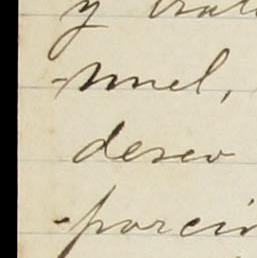 y trat
-nuel,
deseo
-porcio